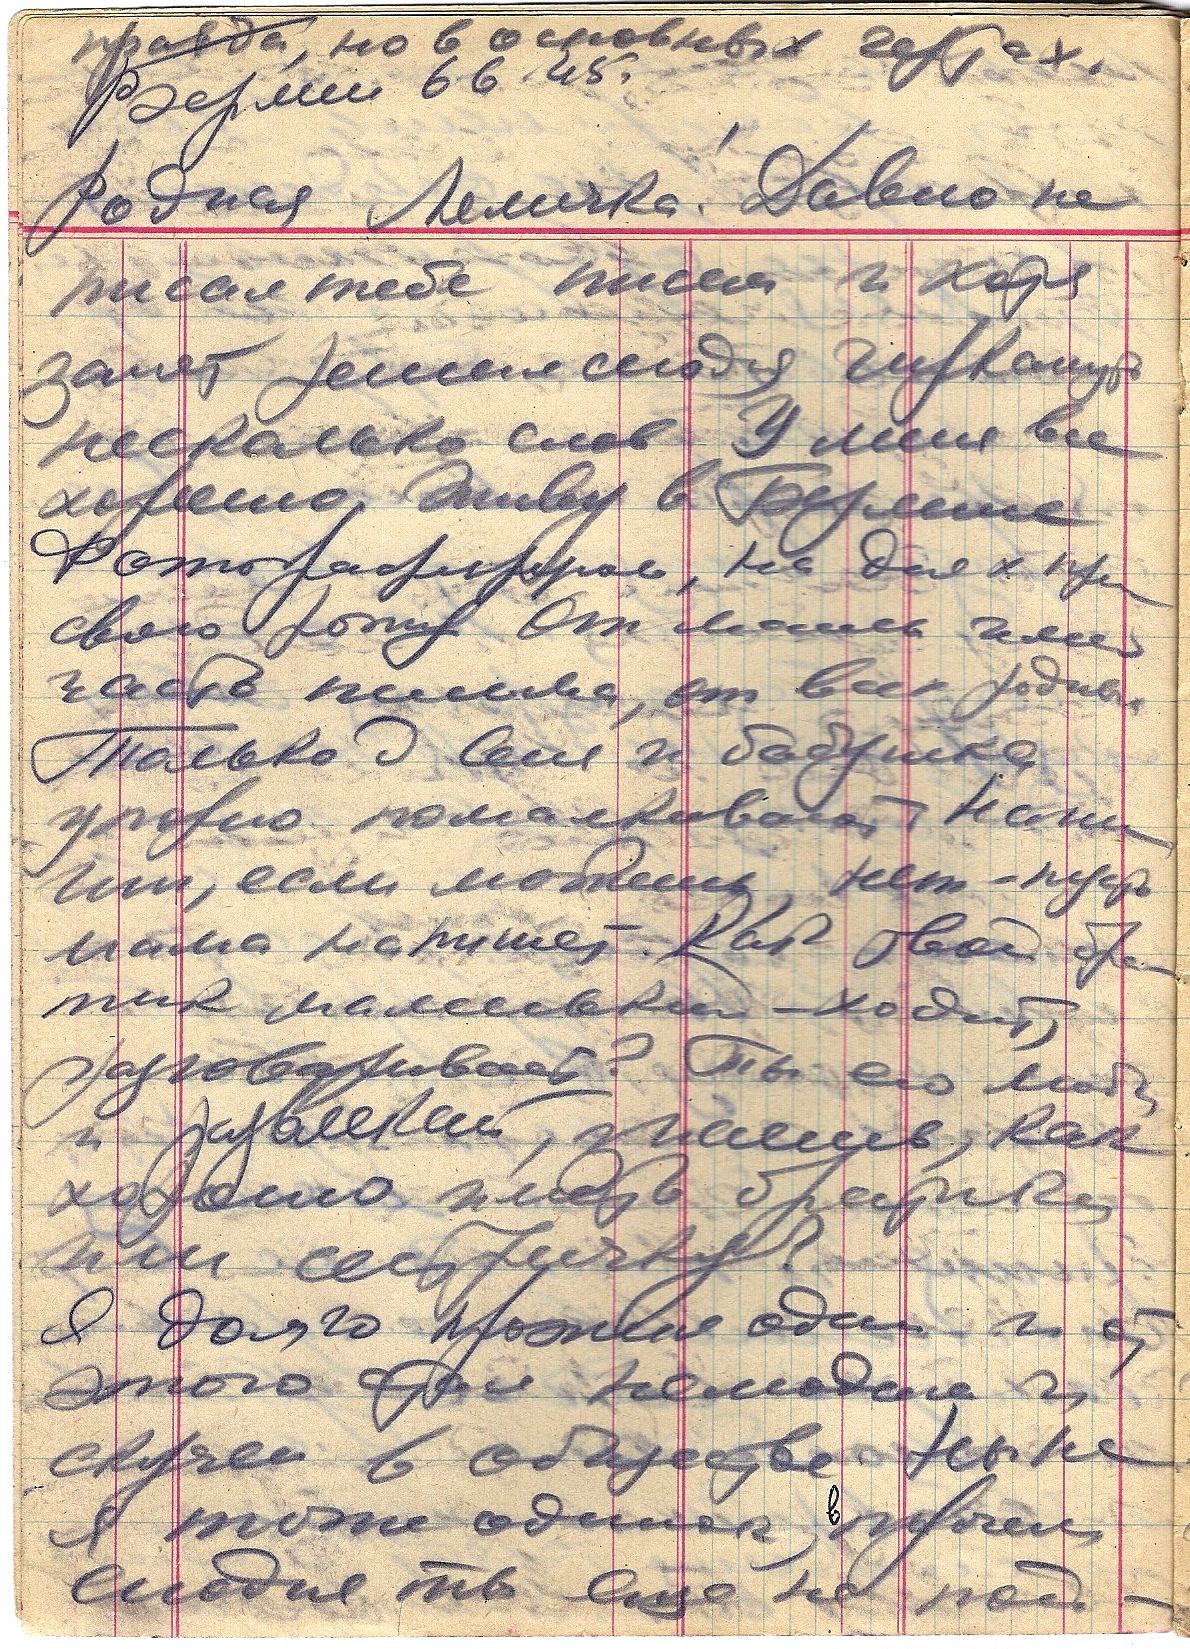 правда, но в основных чертах.
Берлин 6 6 45.
Родная Лемочка! Давно не
писал тебе писем и хотя
занят решил сегодня чиркануть
несколько слов У меня все
хорошо. Живу в Берлине
Фотографирую, на днях при
свою рожу От мамы имею
часто письма, от всех родных
Только Леня и бабушка
упорно помалкивают. Напи
ши, если можешь, нет - пусть
мама напишет. Как твой бра
тик маленький - ходит,
разговаривает? Ты его люби
и развлекай, знаешь, как
хорошо иметь братика
или сестричку?
Я долго прожил один и от
этого был нелюдим и
скучен в обществе Ныне
я тоже одинок, впрочем
сегодня ты еще не пой-